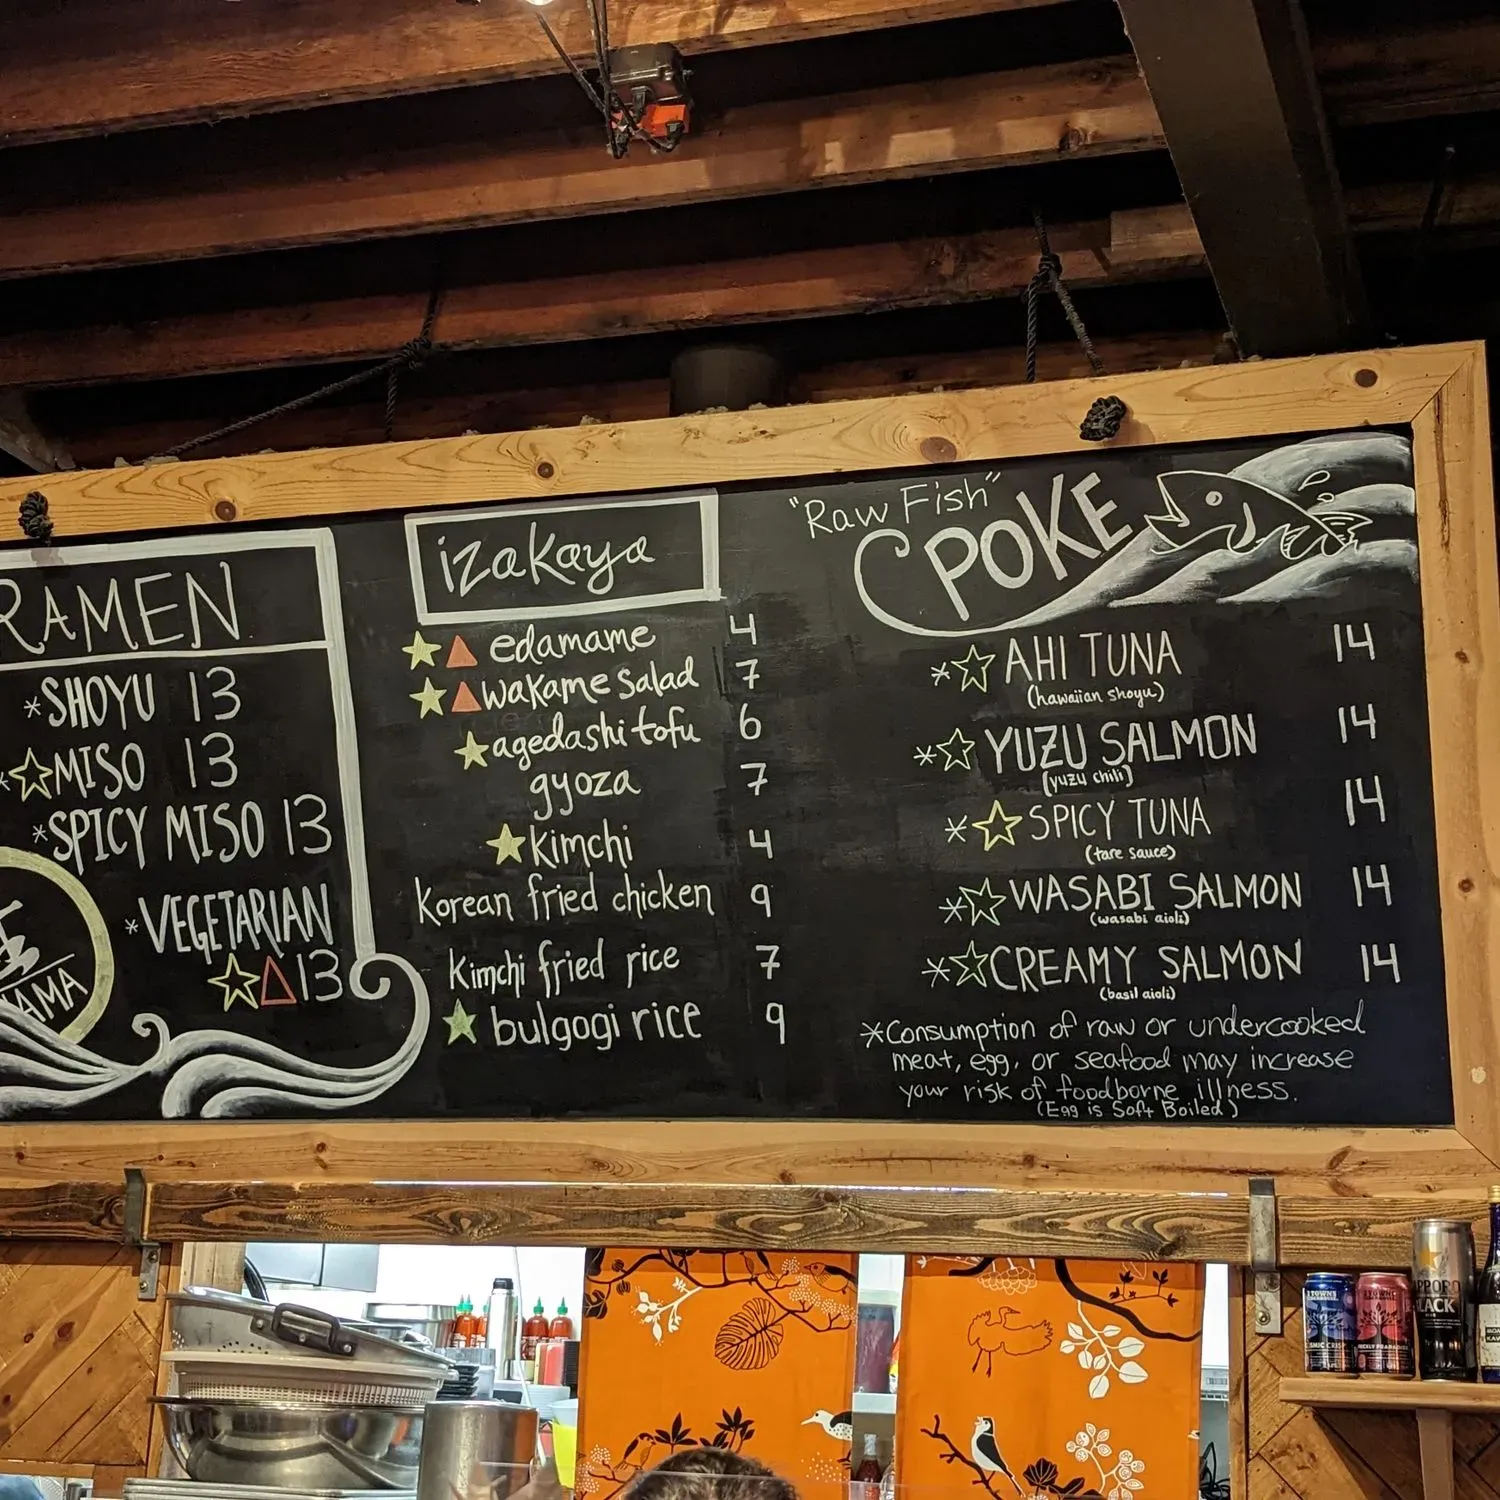 RAMEN
*SHOYU 13
*☆MISO 13
*SPICY MISO 13
*VEGETARIAN
☆△13
AMA
izakaya
★▲ edamame 4
★▲ wakame salad 7
★ agedashi tofu 6
gyoza 7
★ kimchi 4
Korean fried chicken 9
Kimchi fried rice 7
★ bulgogi rice 9
"Raw Fish"
POKE
*☆ AHI TUNA 14
(hawaiian shoyu)
*☆ YUZU SALMON 14
(yuzu chili)
*☆ SPICY TUNA 14
(tare sauce)
*☆ WASABI SALMON 14
(wasabi aioli)
*☆ CREAMY SALMON 14
(basil aioli)
*Consumption of raw or undercooked
meat, egg, or seafood may increase
your risk of foodborne illness.
(Egg is Soft Boiled)
2 TOWNS
2 TOWNS
SAPPORO
BLACK